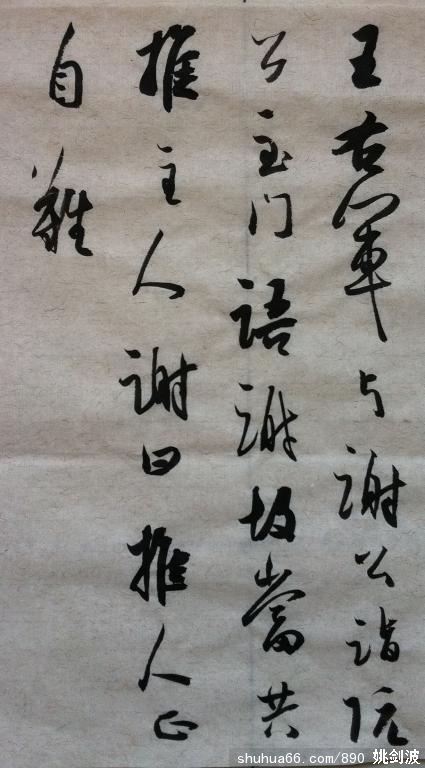 王右軍与谢公詣阮
公至门語谢故當共
推主人谢曰推人正
自難
shuhua66.com/890 姚剑波